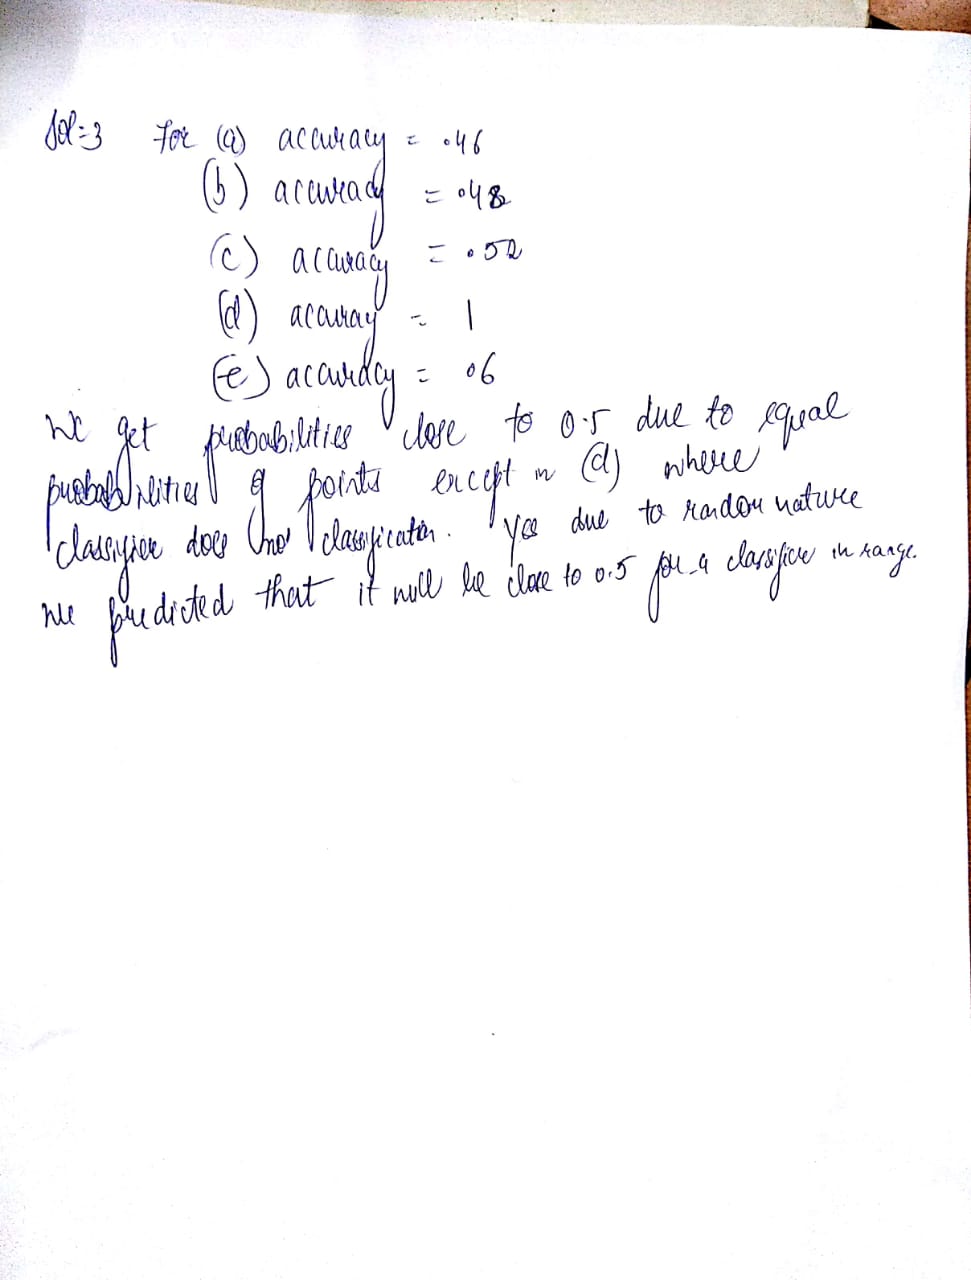 Sol=3 For (a) accuracy = .46
(b) accuracy = .48
(c) accuracy = .52
(d) accuracy = 1
(e) accuracy = .6
We get probabilities close to 0.5 due to equal
probabilities of points except in (d) where
classifier does no classification. Yes due to random nature
we predicted that it will be close to 0.5 for a classifier in range.